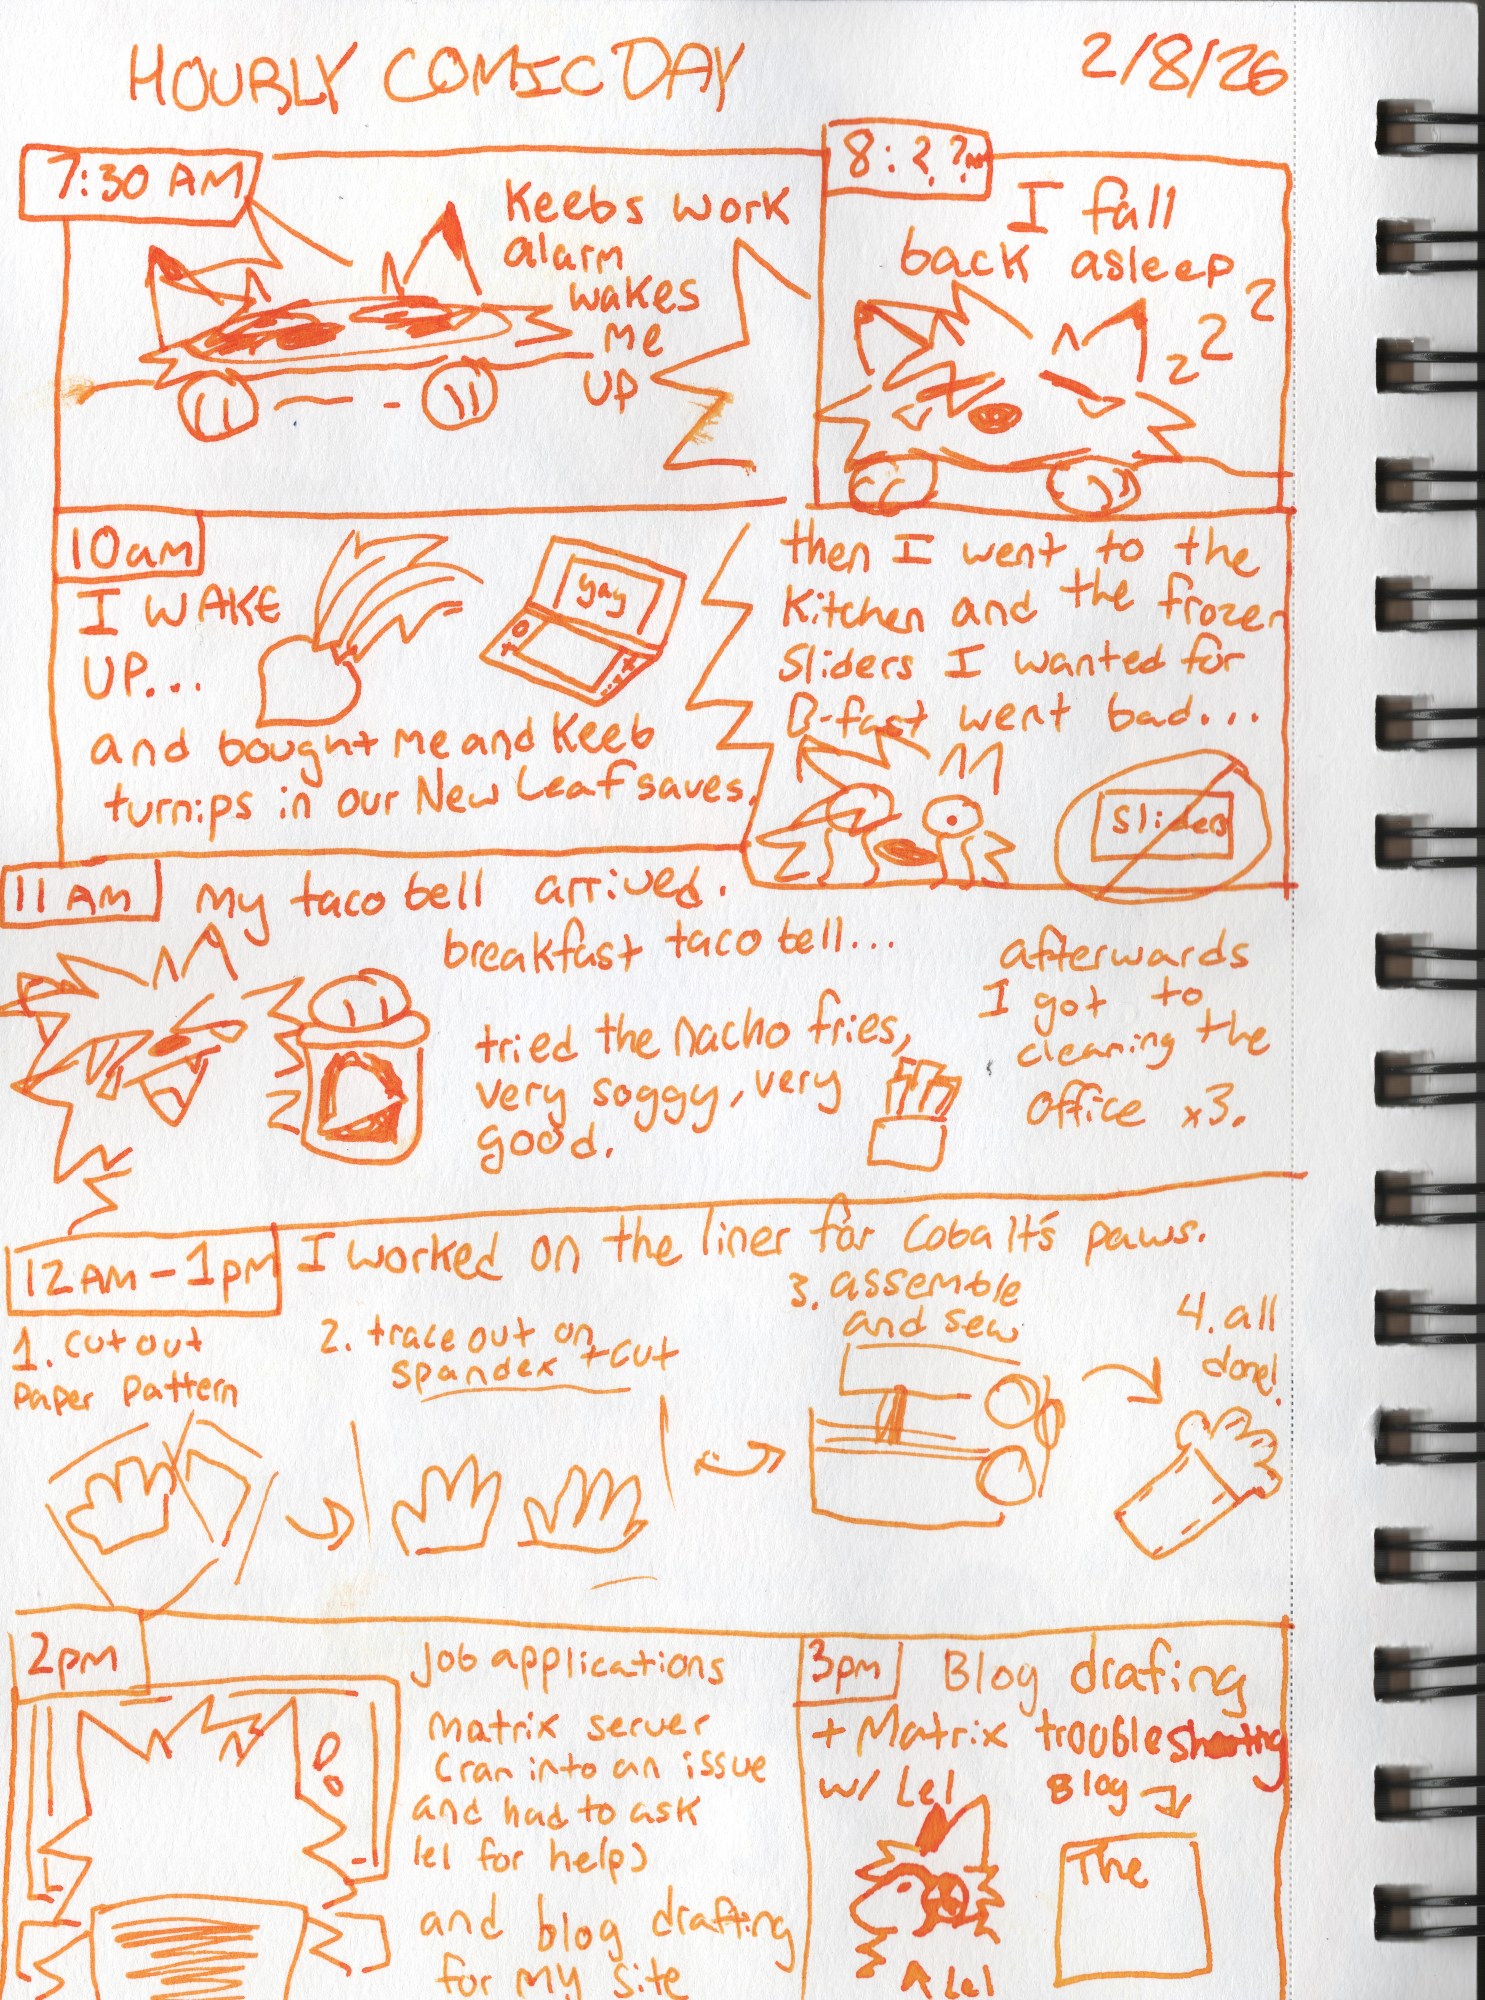 HOURLY COMIC DAY
2/8/26
7:30 AM
Keebs work
alarm
wakes
me
up
8:??AM
I fall
back asleep
z z z
10am
I WAKE
UP...
yay
and bought me and Keeb
turnips in our New Leaf saves.
then I went to the
Kitchen and the frozen
Sliders I wanted for
B-fast went bad...
Sliders
11 AM
My taco bell arrived.
breakfast taco bell...
tried the nacho fries,
very soggy, very
good.
afterwards
I got to
cleaning the
office x3.
12AM-1pm
I worked on the liner for Cobalt's paws.
1. cut out
paper pattern
2. trace out on
spandex + cut
3. assemble
and sew
4. all
done!
2pm
Job applications
Matrix server
(ran into an issue
and had to ask
lel for help)
and blog drafting
for my site
3pm
Blog drafing
+ Matrix troubleshooting
w/ Lel
Blog
The
lel